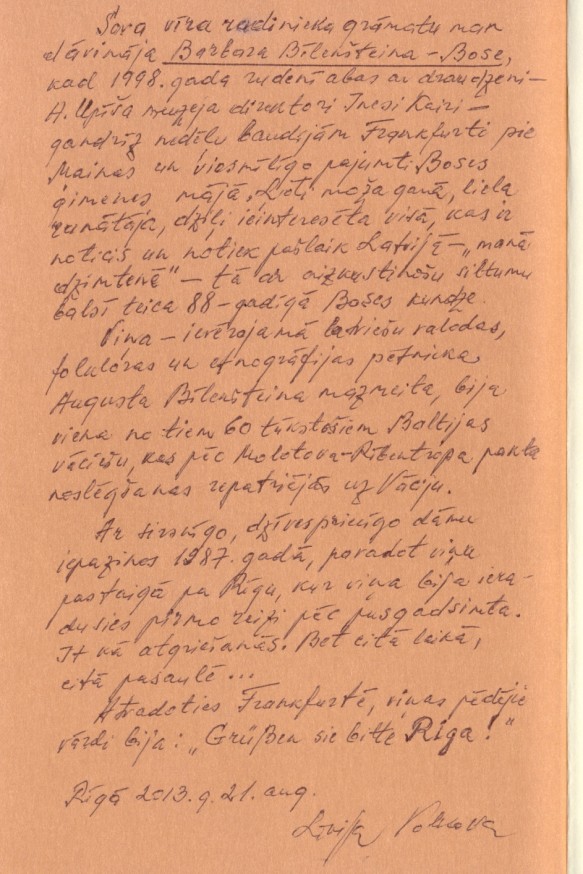 Sava vīra radinieka grāmatu man
dāvināja Barbara Bīlenšteina - Bose,
kad 1998. gada rudenī abas ar draudzeni –
A. Upīša muzeja direktori Inesi Kairi –
gandrīz nedēļu baudījām Frankfurtē pie
Mainas un viesmīlīgo pajumti Boses
ģimenes mājā. Ļoti moža garā, liela
runātāja, dziļi ieinteresēta visā, kas ir
noticis un notiek pašlaik Latvijā – „manā
dzimtenē“ – tā ar aizkustinošu siltumu
balsī teica 88-gadīgā Boses kundze.
Viņa – ievērojamā latviešu valodas,
folkloras un etnogrāfijas pētnieka
Augusta Bīlenšteina mazmeita, bija
viena no tiem 60 tūkstošiem Baltijas
vāciešu, kas pēc Molotova-Ribentropa pakta
noslēgšanas repatriējās uz Vāciju.
Ar sirsnīgo, dzīvespriecīgo dāmu
iepazinos 1987. gadā, pavadot viņu
pastaigā pa Rīgu, kur viņa bija iera-
dusies pirmo reizi pēc pusgadsimta.
It kā atgriešanās. Bet citā laikā,
citā pasaulē ...
Atvadoties Frankfurtē, viņas pēdējie
vārdi bija: „Grüßen sie bitte Riga!“
Rīgā 2013. g. 21. aug.
Līvija